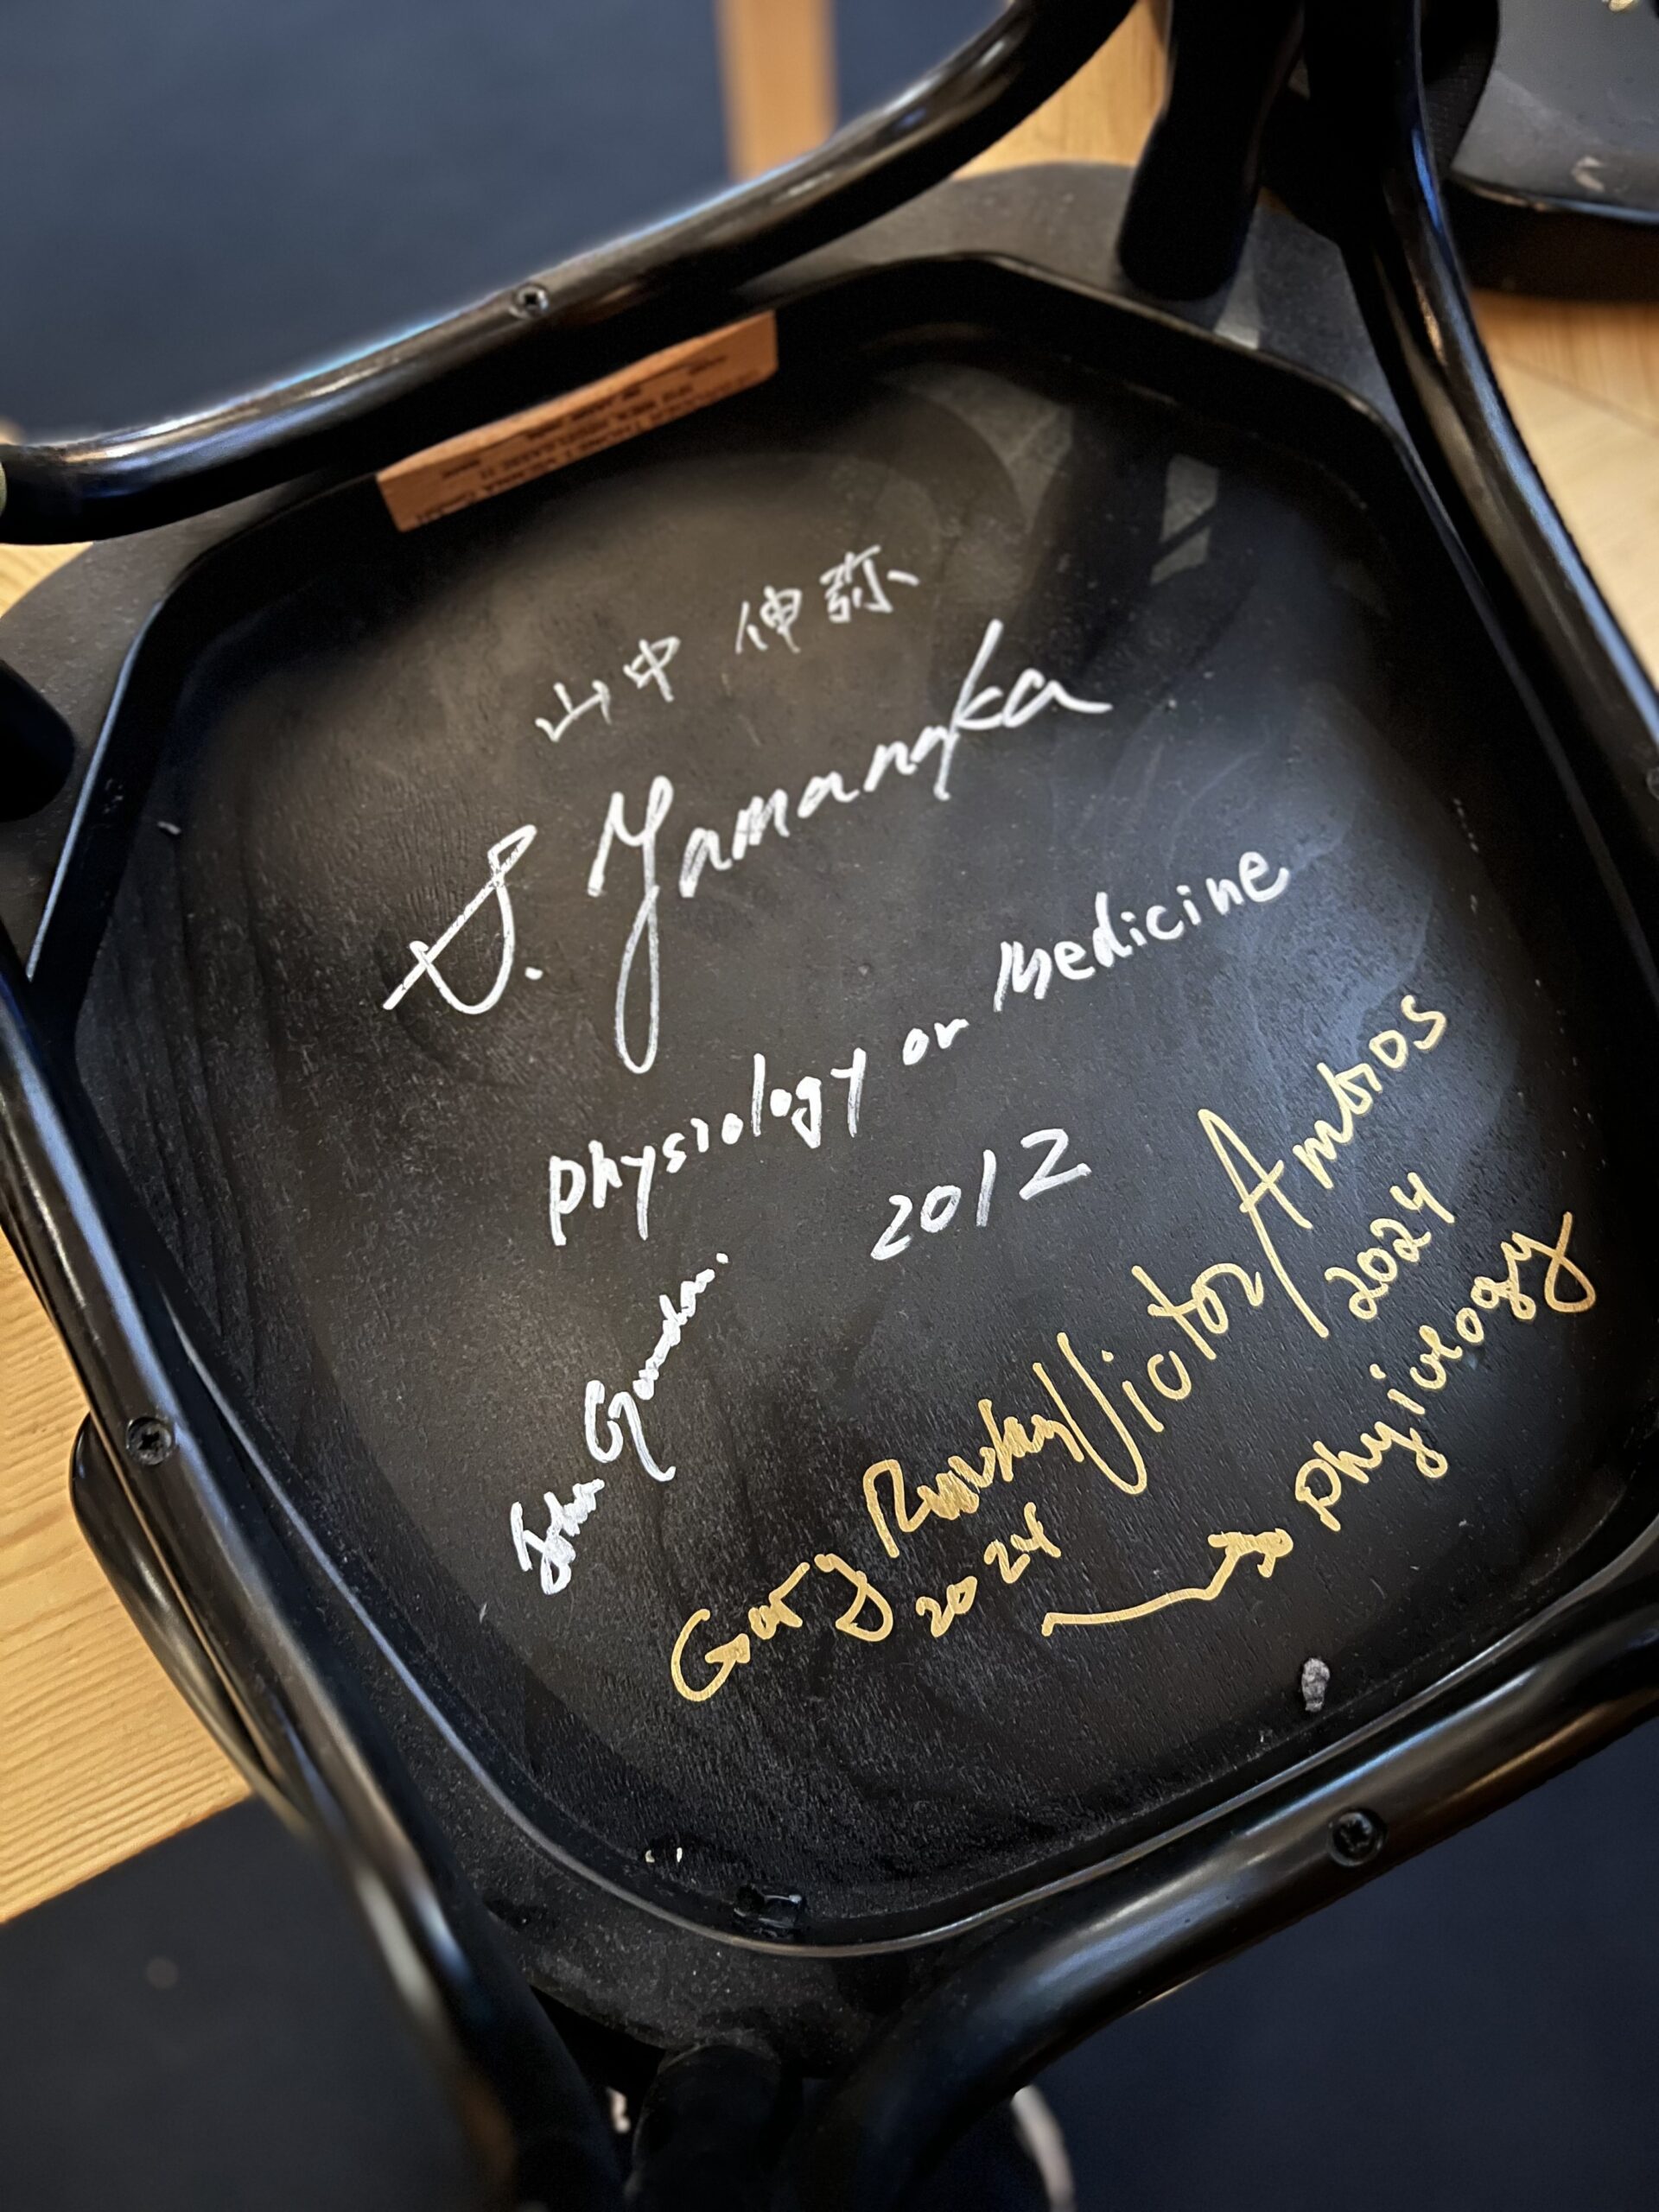 山中 伸弥
S. Yamanaka
Physiology or Medicine
2012
John Gurdon.
Gary Ruvkun
2024
Victor Ambros
2024
Physiology